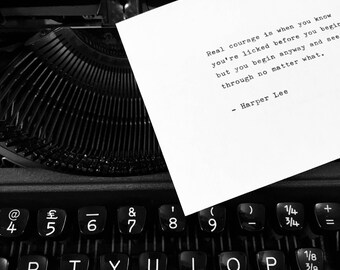 Real courage is when you know
you're licked before you begin
but you begin anyway and see
through no matter what.
- Harper Lee
@ £ — & ' ( ) ¼ ⅜ +
4 5 6 7 8 9 - ¾ =
R T Y U I O P ⅛